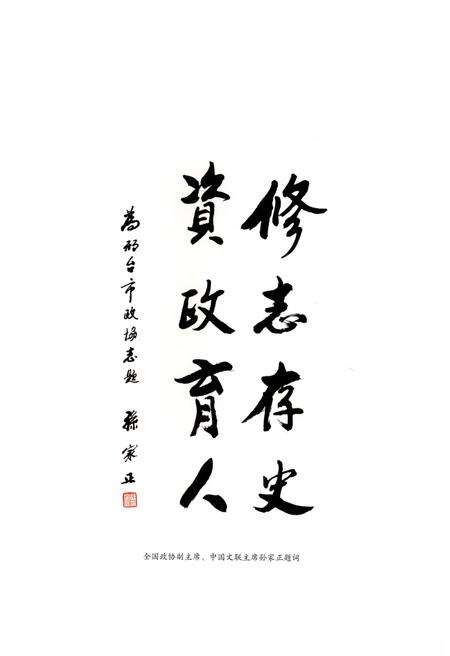 修志存史
資政育人
為邢台市政协志題 孫家正
全国政协副主席、中国文联主席孙家正题词